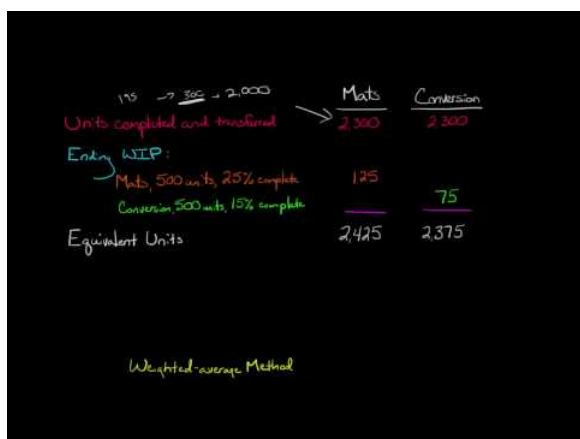 195 → 300 → 2,000
Mats Conversion
Units completed and transferred 2,300 2300
Ending WIP:
Mats, 500 units, 25% complete 125
Conversion, 500 units, 15% complete 75
Equivalent Units 2,425 2,375
Weighted-average Method